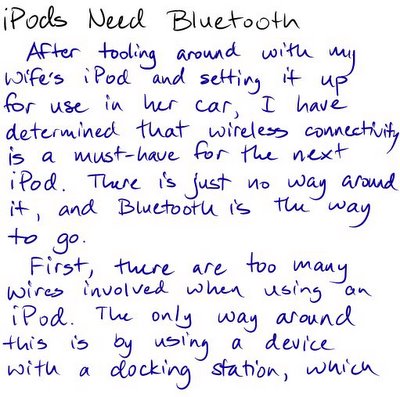 iPods Need Bluetooth
After tooling around with my
wife's iPod and setting it up
for use in her car, I have
determined that wireless connectivity
is a must-have for the next
iPod. There is just no way around
it, and Bluetooth is the way
to go.
First, there are too many
wires involved when using an
iPod. The only way around
this is by using a device
with a docking station, which